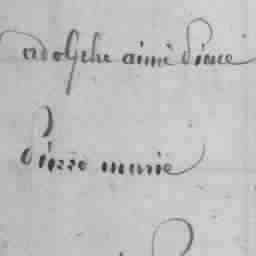 adolphe aimé
pierre marie